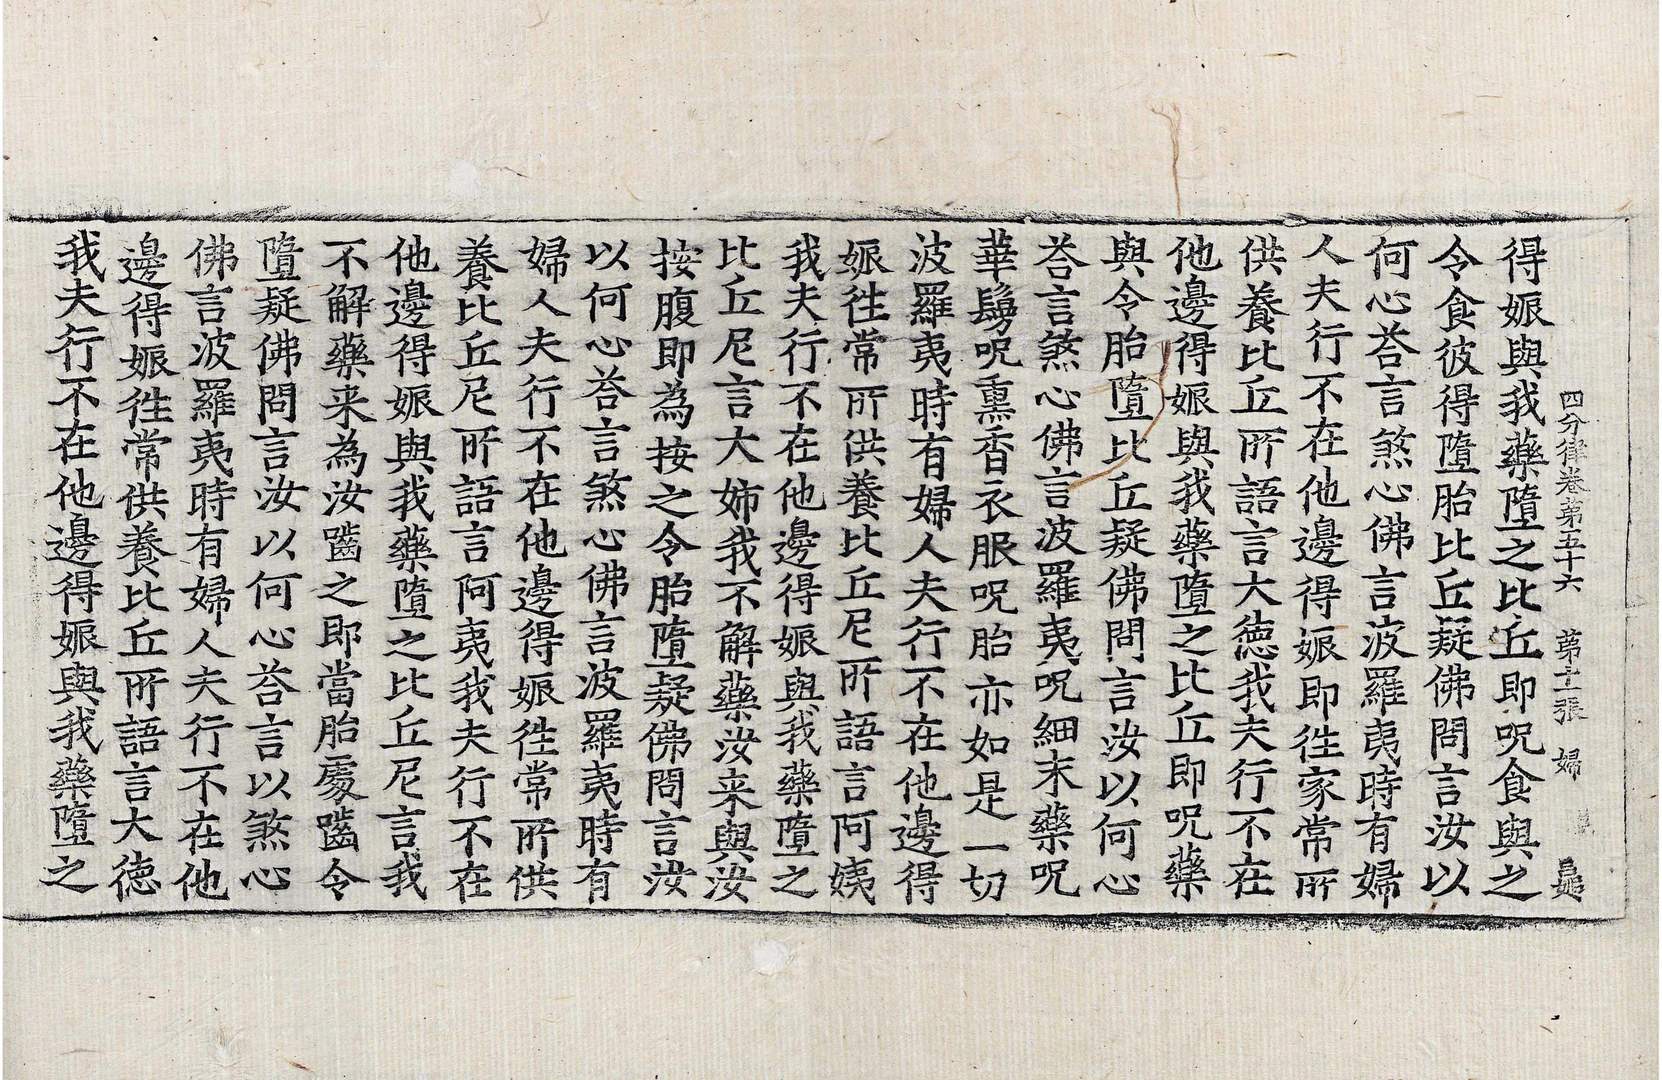 四分律卷第五十六 第十一張 婦
得娠與我藥墮之比丘即呪食與之
令食彼得墮胎比丘疑佛問言汝以
何心荅言煞心佛言波羅夷時有婦
人夫行不在他邊得娠即往家常所
供養比丘所語言大德我夫行不在
他邊得娠與我藥墮之比丘即呪藥
與令胎墮比丘疑佛問言汝以何心
荅言煞心佛言波羅夷呪細末藥呪
華鬘呪熏香衣服呪胎亦如是一切
波羅夷時有婦人夫行不在他邊得
娠往常所供養比丘尼所語言阿姨
我夫行不在他邊得娠與我藥墮之
比丘尼言大姉我不解藥汝来與汝
按腹即為按之令胎墮疑佛問言汝
以何心荅言煞心佛言波羅夷時有
婦人夫行不在他邊得娠往常所供
養比丘尼所語言阿夷我夫行不在
他邊得娠與我藥墮之比丘尼言我
不解藥来為汝嚙之即當胎處嚙令
墮疑佛問言汝以何心荅言以煞心
佛言波羅夷時有婦人夫行不在他
邊得娠往常供養比丘所語言大德
我夫行不在他邊得娠與我藥墮之